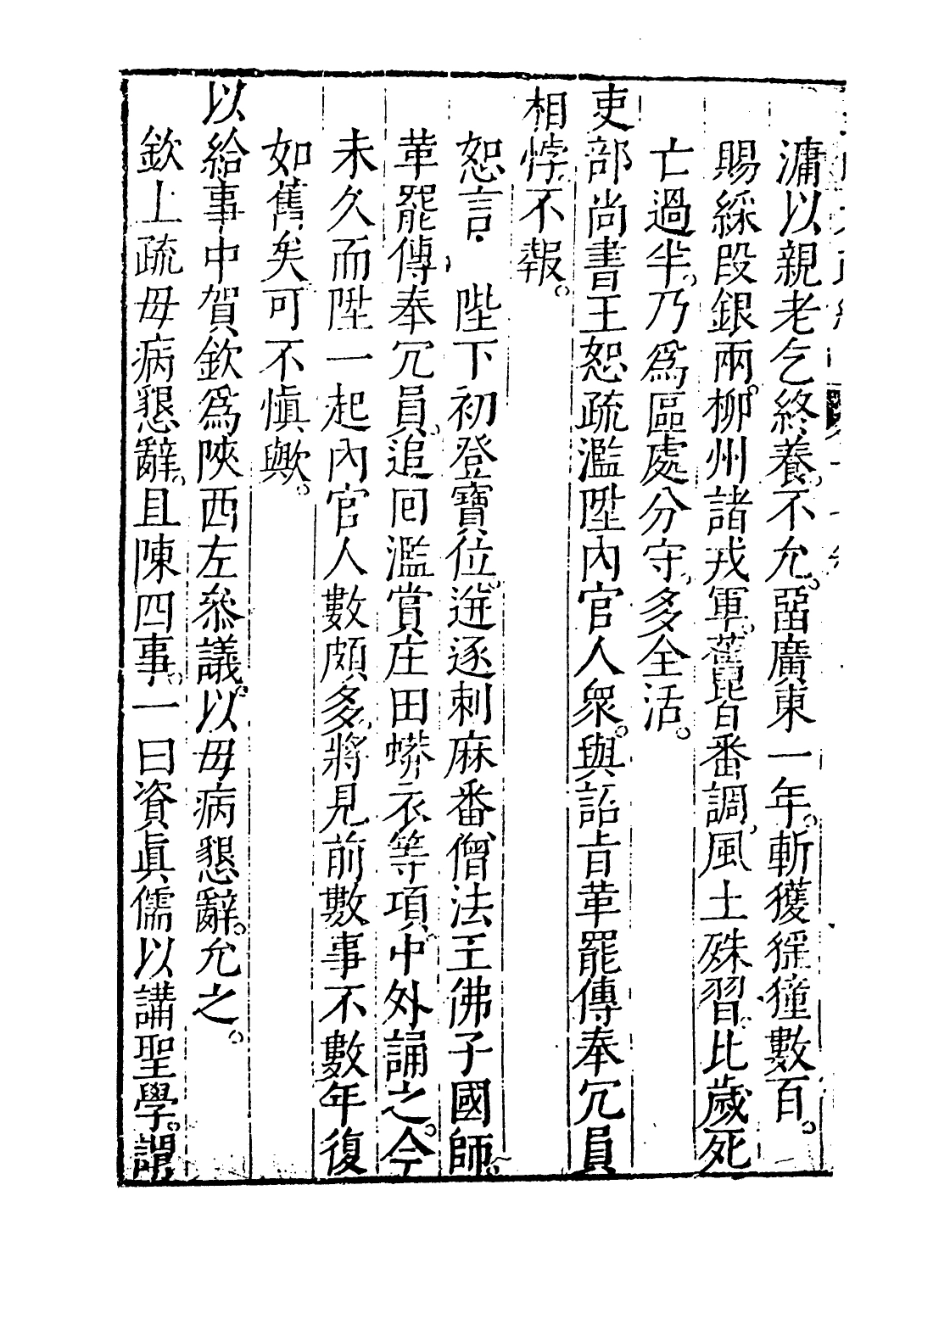 滽以親老乞終養。不允。畱廣東一年。斬獲猺獞數百。
賜綵段銀兩。柳州諸戎軍。舊皆番調。風土殊習。比歲死
亡過半。乃爲區處分守。多全活。
吏部尚書王恕疏濫陞內官人衆。與詔旨革罷傳奉冗員
相悖。不報。
恕言。陛下初登寶位。迸逐刺麻番僧法王佛子國師。
革罷傳奉冗員。追回濫賞庄田蟒衣等項。中外誦之。今
未久而陞一起內官人數頗多。將見前數事不數年復
如舊矣。可不慎歟。
以給事中賀欽爲陝西左叅議。以毋病懇辭。允之。
欽上疏毋病懇辭。且陳四事。一曰資眞儒以講聖學。謂